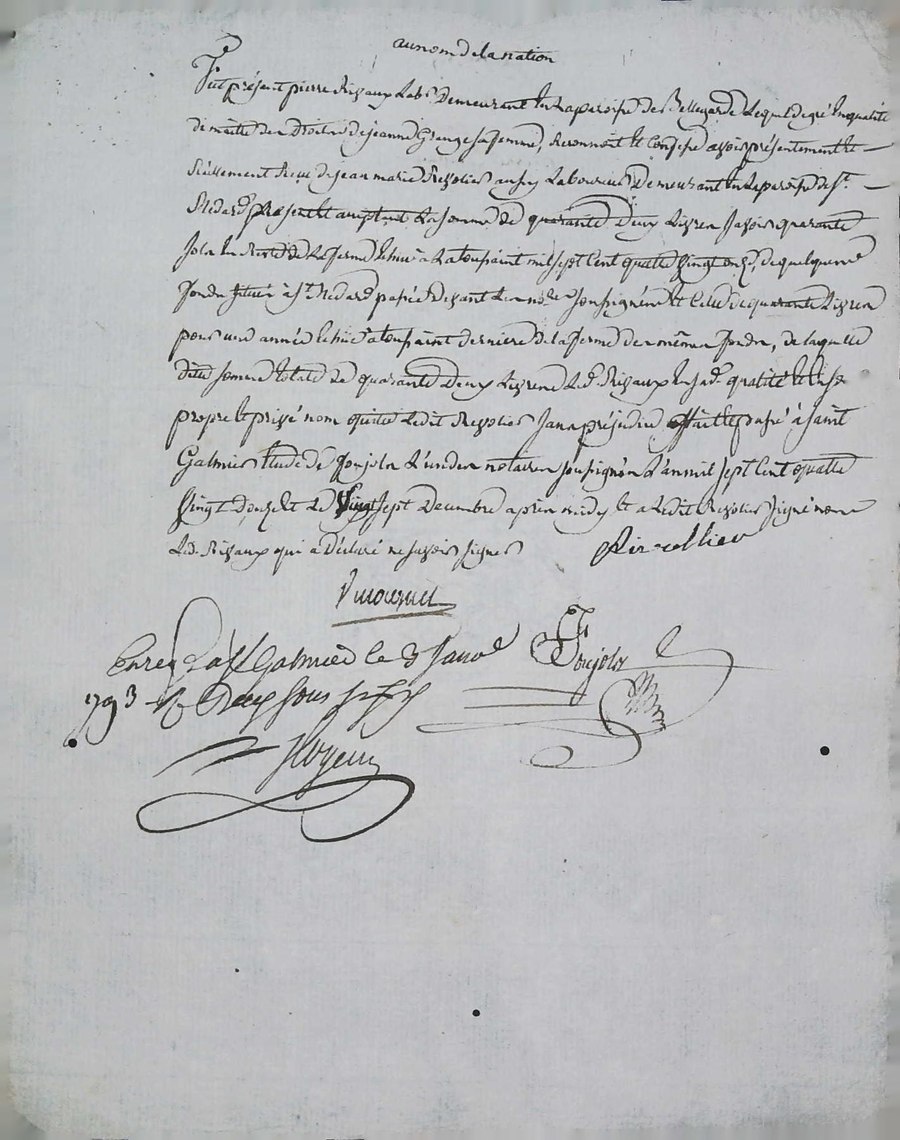 au nom de la nation
Fut présent pierre Rivaux Lab.r Demeurant En la paroisse de Bellegarde Lequel de gré En qualité
de maitre des Droits de jeanne Grange sa femme, Reconnoit Et Confesse avoir présentement Et
Réellement Reçu de jean marie Revolier aussy Laboureur Demeurant En la paroisse de St.
Medard présent Et acceptant La somme de quarante Deux Livres savoir quarante
sols En Reste de La ferme Echue a La toussaint mil sept Cent quatre vingt onze, de quelques
fonds situés à St. Medard passée Devant Les no.res soussignés Et Celle de quarante Livres
pour une année Echue a la toussaint derniere de la ferme des mêmes fonds, de laquelle
ditte somme totale de quarante Deux Livres Led. Rivaux En sad. qualité Et En son
propre Et privé nom quitte Ledit Revolier sans préjudice fait Et passé à saint
Galmier Etude de Poujols L'un des notaires soussignés L'an mil sept Cent quatre
vingt Douze Et Le vingt sept Decembre après midy Et a Ledit Revolier signé non
Led. Rivaux qui a Déclaré ne savoir signer
Enreg. à St Galmier le 3 Janv.
1793